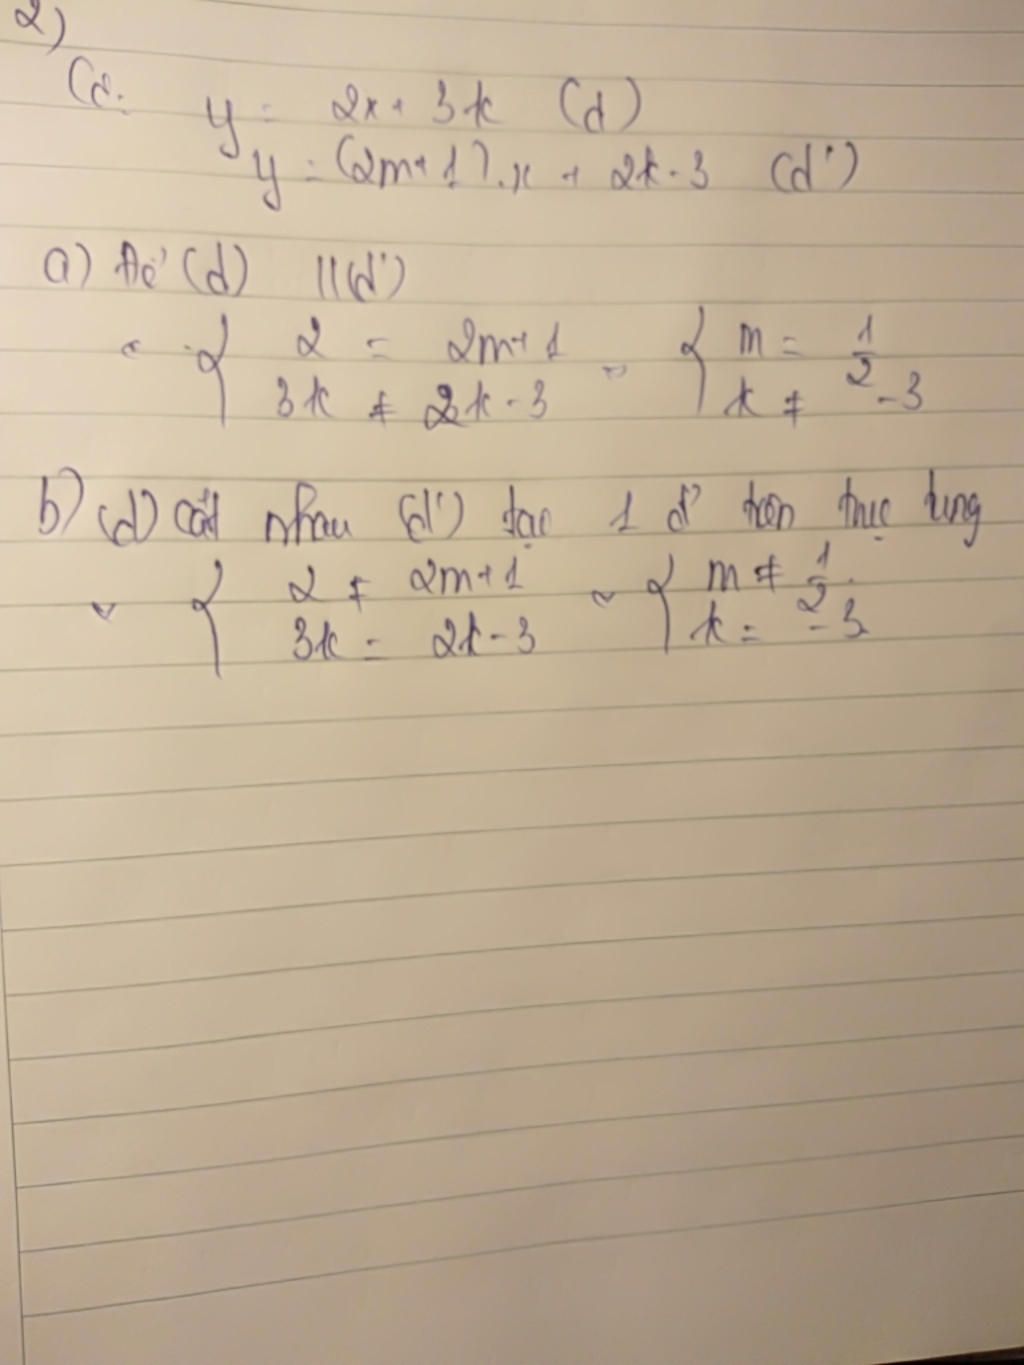 2)
(d:
y = 2x + 3k (d)
y = (2m+1).x + 2k - 3 (d')
a) Để (d) // (d')
{ 2 = 2m+1 { m = 1/2
3k ≠ 2k - 3 k ≠ -3
b) (d) cắt nhau (d') tạo 1 đ' trên trục tung
{ 2 ≠ 2m+1 { m ≠ 1/2
3k = 2k - 3 k = -3